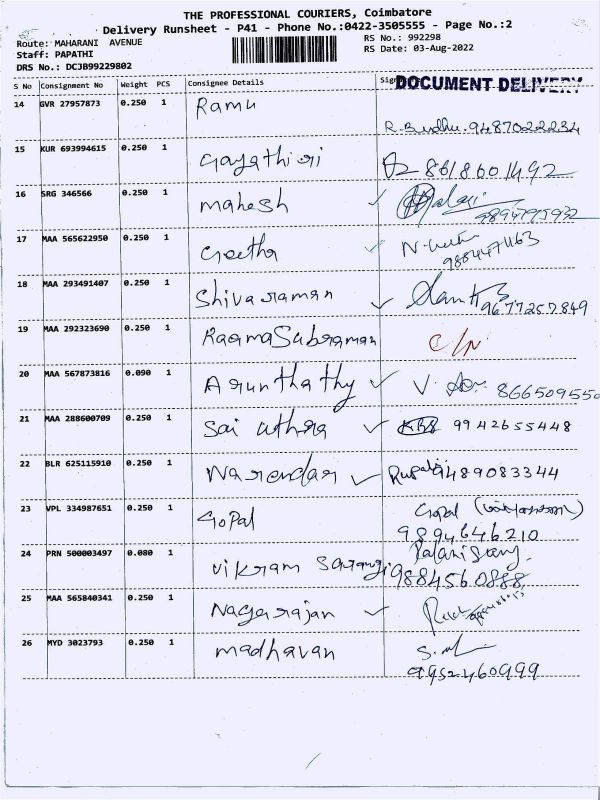 THE PROFESSIONAL COURIERS, Coimbatore
Delivery Runsheet - P41 - Phone No.:0422-3505555 - Page No.:2
Route: MAHARANI AVENUE
RS No.: 992298
Staff: PAPATHI
RS Date: 03-Aug-2022
DRS No.: DCJB99229802
S No Consignment No Weight PCS Consignee Details
DOCUMENT DELIVERY
14 GVR 27957873 0.250 1 Ramu
9487022234
15 KUR 693994615 0.250 1 Gayathiri 8618601492
16 SRG 346566 0.250 1 mahesh
9894795932
17 MAA 565622950 0.250 1 Geetha
18 MAA 293491407 0.250 1 Shivaraman
9677257849
19 MAA 292323690 0.250 1 RaamaSubraman C/N
20 MAA 567873816 0.090 1 Arunthathy V. 866509550
21 MAA 288600709 0.250 1 Sai 9942655448
22 BLR 625115910 0.250 1 Narendar 9489083344
23 VPL 334987651 0.250 1 Gopal Gopal
9894646210
24 PRN 500003497 0.080 1 vikram Sarangi 9884560888
25 MAA 565840341 0.250 1 Nagarajan
26 MYD 3023793 0.250 1 madhavan
9952460999